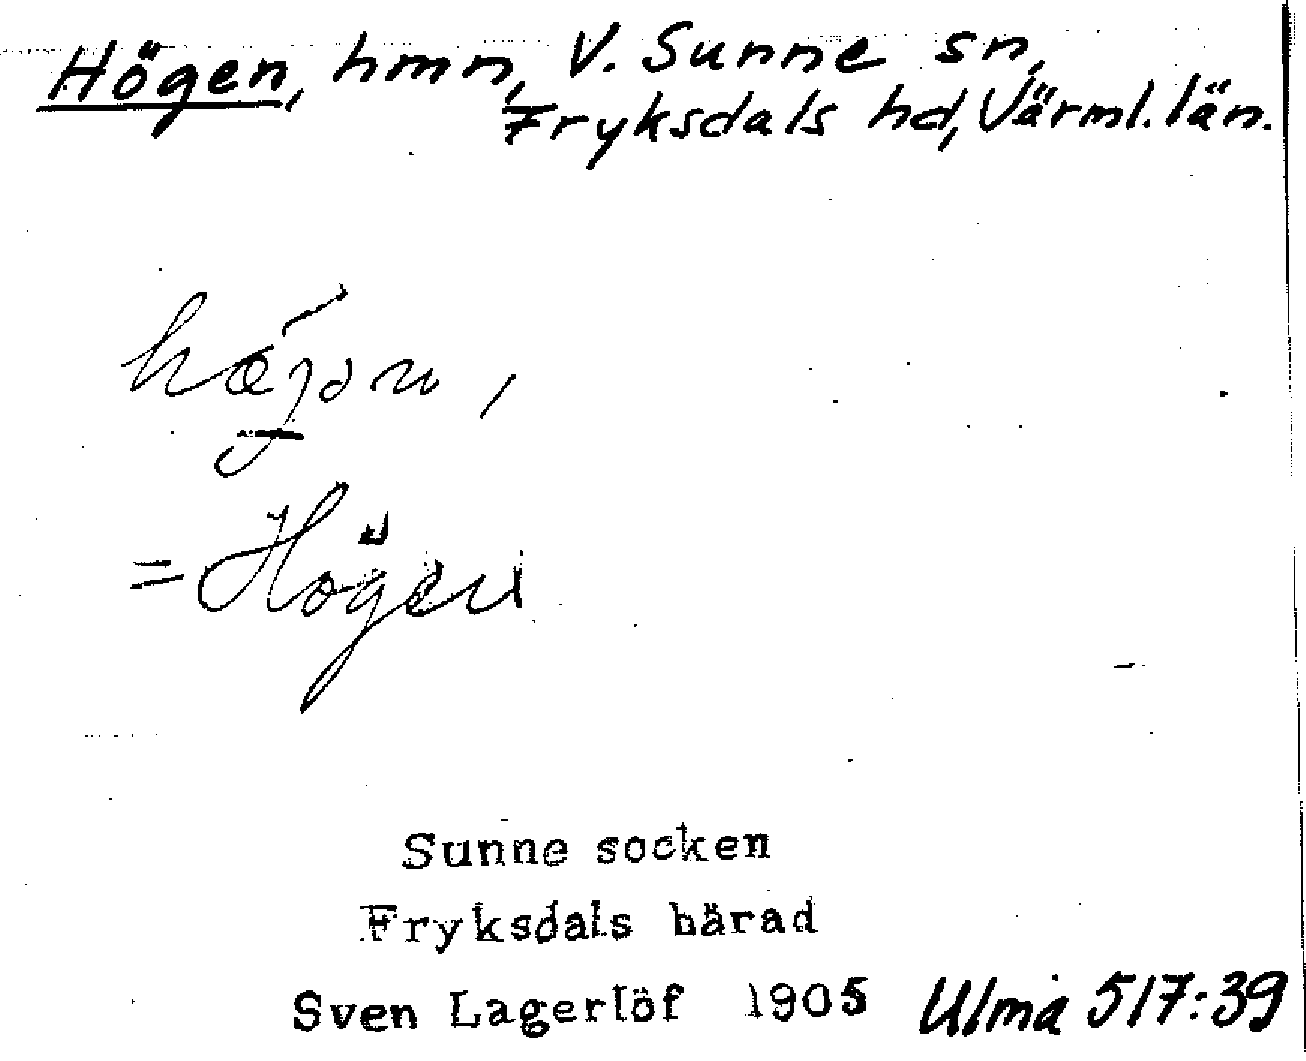 Högen, hmn, V. Sunne sn,
Fryksdals hd, Värml. län.
= Högen
Sunne socken
Fryksdals härad
Sven Lagerlöf 1905 Ulma 517:39